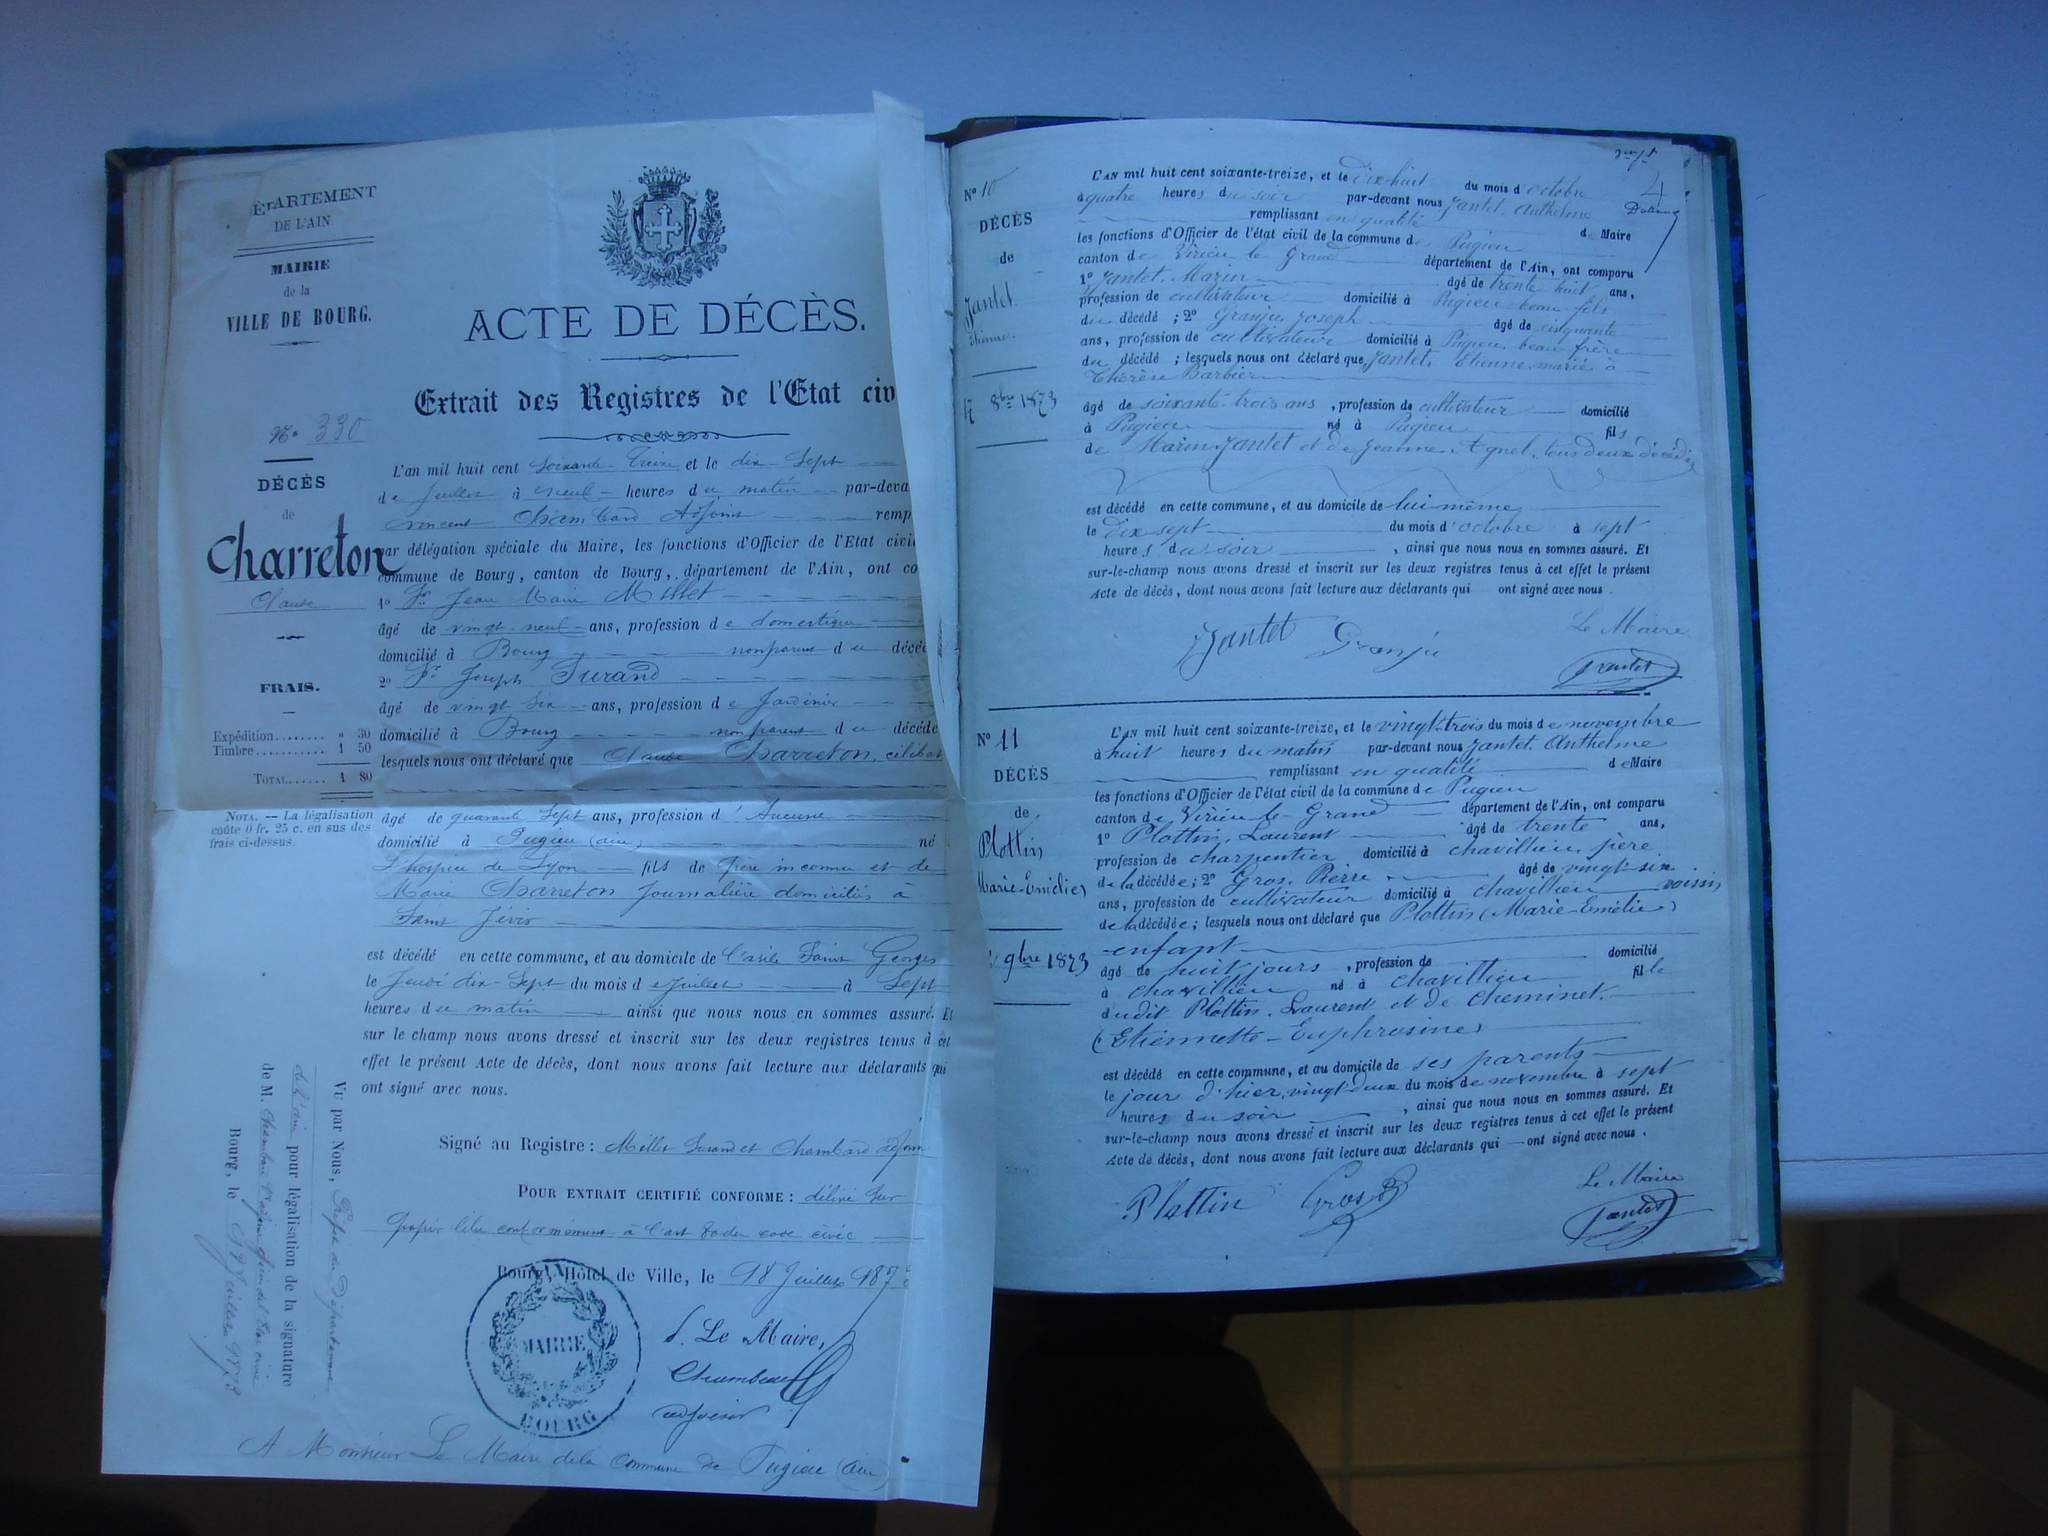 DÉPARTEMENT
DE L'AIN
MAIRIE
de la
VILLE DE BOURG.
N° 330
DÉCÈS
de
Charreton
Claude
FRAIS.
Expédition........ » 30
Timbre........... 1 50
TOTAL...... 1 80
NOTA. — La légalisation
coûte 0 fr. 25 c. en sus des
frais ci-dessus.
ACTE DE DÉCÈS.
Extrait des Registres de l'Etat civ
L'an mil huit cent soixante-treize et le dix-sept
de Juillet à neuf heures du matin par-deva
Vincent Chambard Adjoint remp
par délégation spéciale du Maire, les fonctions d'Officier de l'Etat civi
commune de Bourg, canton de Bourg, département de l'Ain, ont co
1° Sr Jean Marie Millet
âgé de vingt-neuf ans, profession de domestique
domicilié à Bourg non parent du décéd
2° Sr Joseph Durand
âgé de vingt six ans, profession de Jardinier
domicilié à Bourg non parent du décédé
lesquels nous ont déclaré que Claude Charreton, célibat
âgé de quarante sept ans, profession d'Aucune
domicilié à Pugieu (ain) né
L'hospice de Lyon fils de père inconnu et de
Marie Charreton journalière domiciliée à
Saint
est décédé en cette commune, et au domicile de l'asile Saint Georges
le Jeudi dix-sept du mois de Juillet à Sept
heures du matin ainsi que nous nous en sommes assuré. Et
sur le champ nous avons dressé et inscrit sur les deux registres tenus à cet
effet le présent Acte de décès, dont nous avons fait lecture aux déclarants qui
ont signé avec nous.
Signé au Registre : Millet Durand et Chambard adjoint
POUR EXTRAIT CERTIFIÉ CONFORME : délivré sur
papier libre conformément à l'art 80 du code civil
Bourg, Hôtel de Ville, le 18 Juillet 187
MAIRIE
BOURG
p. Le Maire,
Chambard
adjoint
A Monsieur Le Maire de la Commune de Pugieu (ain)
Vu par Nous, Préfet du Département
de l'ain pour légalisation de la signature
de M. Chambard l'adjoint de l'Etat civil
Bourg, le 18 Juillet 1873
4
N° 10
DÉCÈS
de
Jantet
Etienne.
17 8bre 1873
L'AN mil huit cent soixante-treize, et le dix-huit du mois d'octobre
à quatre heures du soir par-devant nous Jantet Anthelme
remplissant en qualité de Maire
les fonctions d'Officier de l'état civil de la commune de Pugieu
canton de Virieu le Grand département de l'Ain, ont comparu
1° Jantet Marin âgé de trente huit ans,
profession de cultivateur domicilié à Pugieu beau fils
du décédé ; 2° Granju Joseph âgé de cinquante
ans, profession de cultivateur domicilié à Pugieu beau-frère
du décédé ; lesquels nous ont déclaré que Jantet Etienne marié à
Thérèse Barbier
âgé de soixante-trois ans, profession de cultivateur domicilié
à Pugieu né à Pugieu fils
de Marin Jantet et de Jeanne Agnel, tous deux décédés
est décédé en cette commune, et au domicile de lui même
le dix sept du mois d'octobre à sept
heures du soir, ainsi que nous nous en sommes assuré. Et
sur-le-champ nous avons dressé et inscrit sur les deux registres tenus à cet effet le présent
Acte de décès, dont nous avons fait lecture aux déclarants qui ont signé avec nous.
Le Maire
Jantet Granju
Jantet
N° 11
DÉCÈS
de
Plottin
Marie-Emélie
9bre 1873
L'AN mil huit cent soixante-treize, et le vingt-trois du mois de novembre
à huit heures du matin par-devant nous Jantet Anthelme
remplissant en qualité de Maire
les fonctions d'Officier de l'état civil de la commune de Pugieu
canton de Virieu-le-Grand département de l'Ain, ont comparu
1° Plottin, Laurent âgé de trente ans,
profession de charpentier domicilié à chavillieu, père
de la décédée ; 2° Gros, Pierre âgé de vingt-six
ans, profession de cultivateur domicilié à chavillieu voisin
de la décédée ; lesquels nous ont déclaré que Plottin (Marie-Emélie)
enfant
âgé de huit jours, profession de domicilié
à chavillieu né à chavillieu fille
dudit Plottin, Laurent et de Cheminet.
(Etiennette-Euphrosine)
est décédé en cette commune, et au domicile de ses parents
le jour d'hier, vingt-deux du mois de novembre à sept
heures du soir, ainsi que nous nous en sommes assuré. Et
sur-le-champ nous avons dressé et inscrit sur les deux registres tenus à cet effet le présent
Acte de décès, dont nous avons fait lecture aux déclarants qui ont signé avec nous.
Le Maire
Plottin Gros P
Jantet